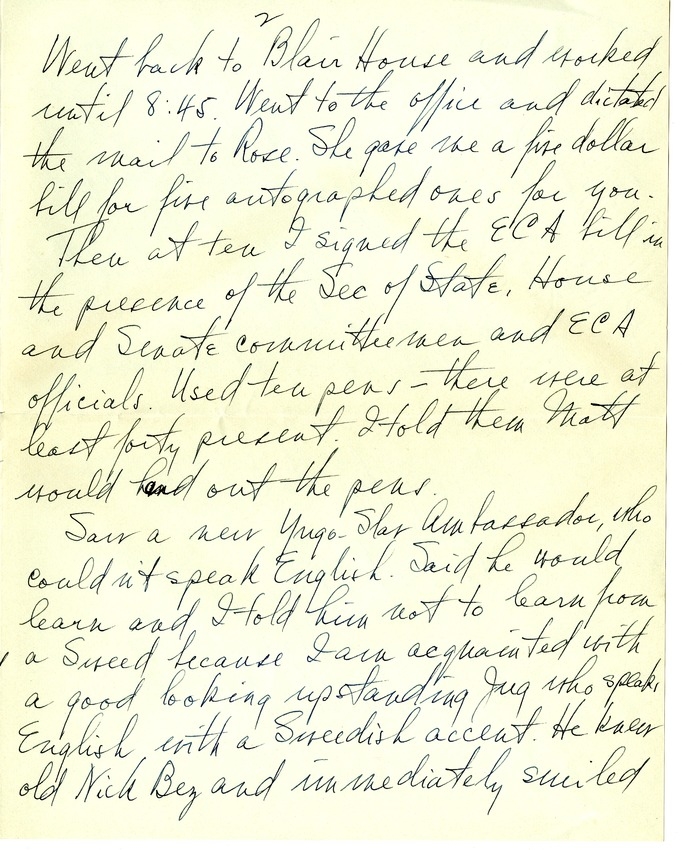 2
Went back to Blair House and worked
until 8:45. Went to the office and dictated
the mail to Rose. She gave me a five dollar
bill for five autographed ones for you.
Then at ten I signed the ECA bill in
the presence of the Sec of State, House
and Senate committeemen and ECA
officials. Used ten pens – there were at
least forty present. I told them Matt
would hand out the pens.
Saw a new Yugo-Slav Ambassador, who
couldn't speak English. Said he would
learn and I told him not to learn from
a Sweed because I am acquainted with
a good looking upstanding Jug who speaks
English with a Sweedish accent. He knew
old Nick Bez and immediately smiled